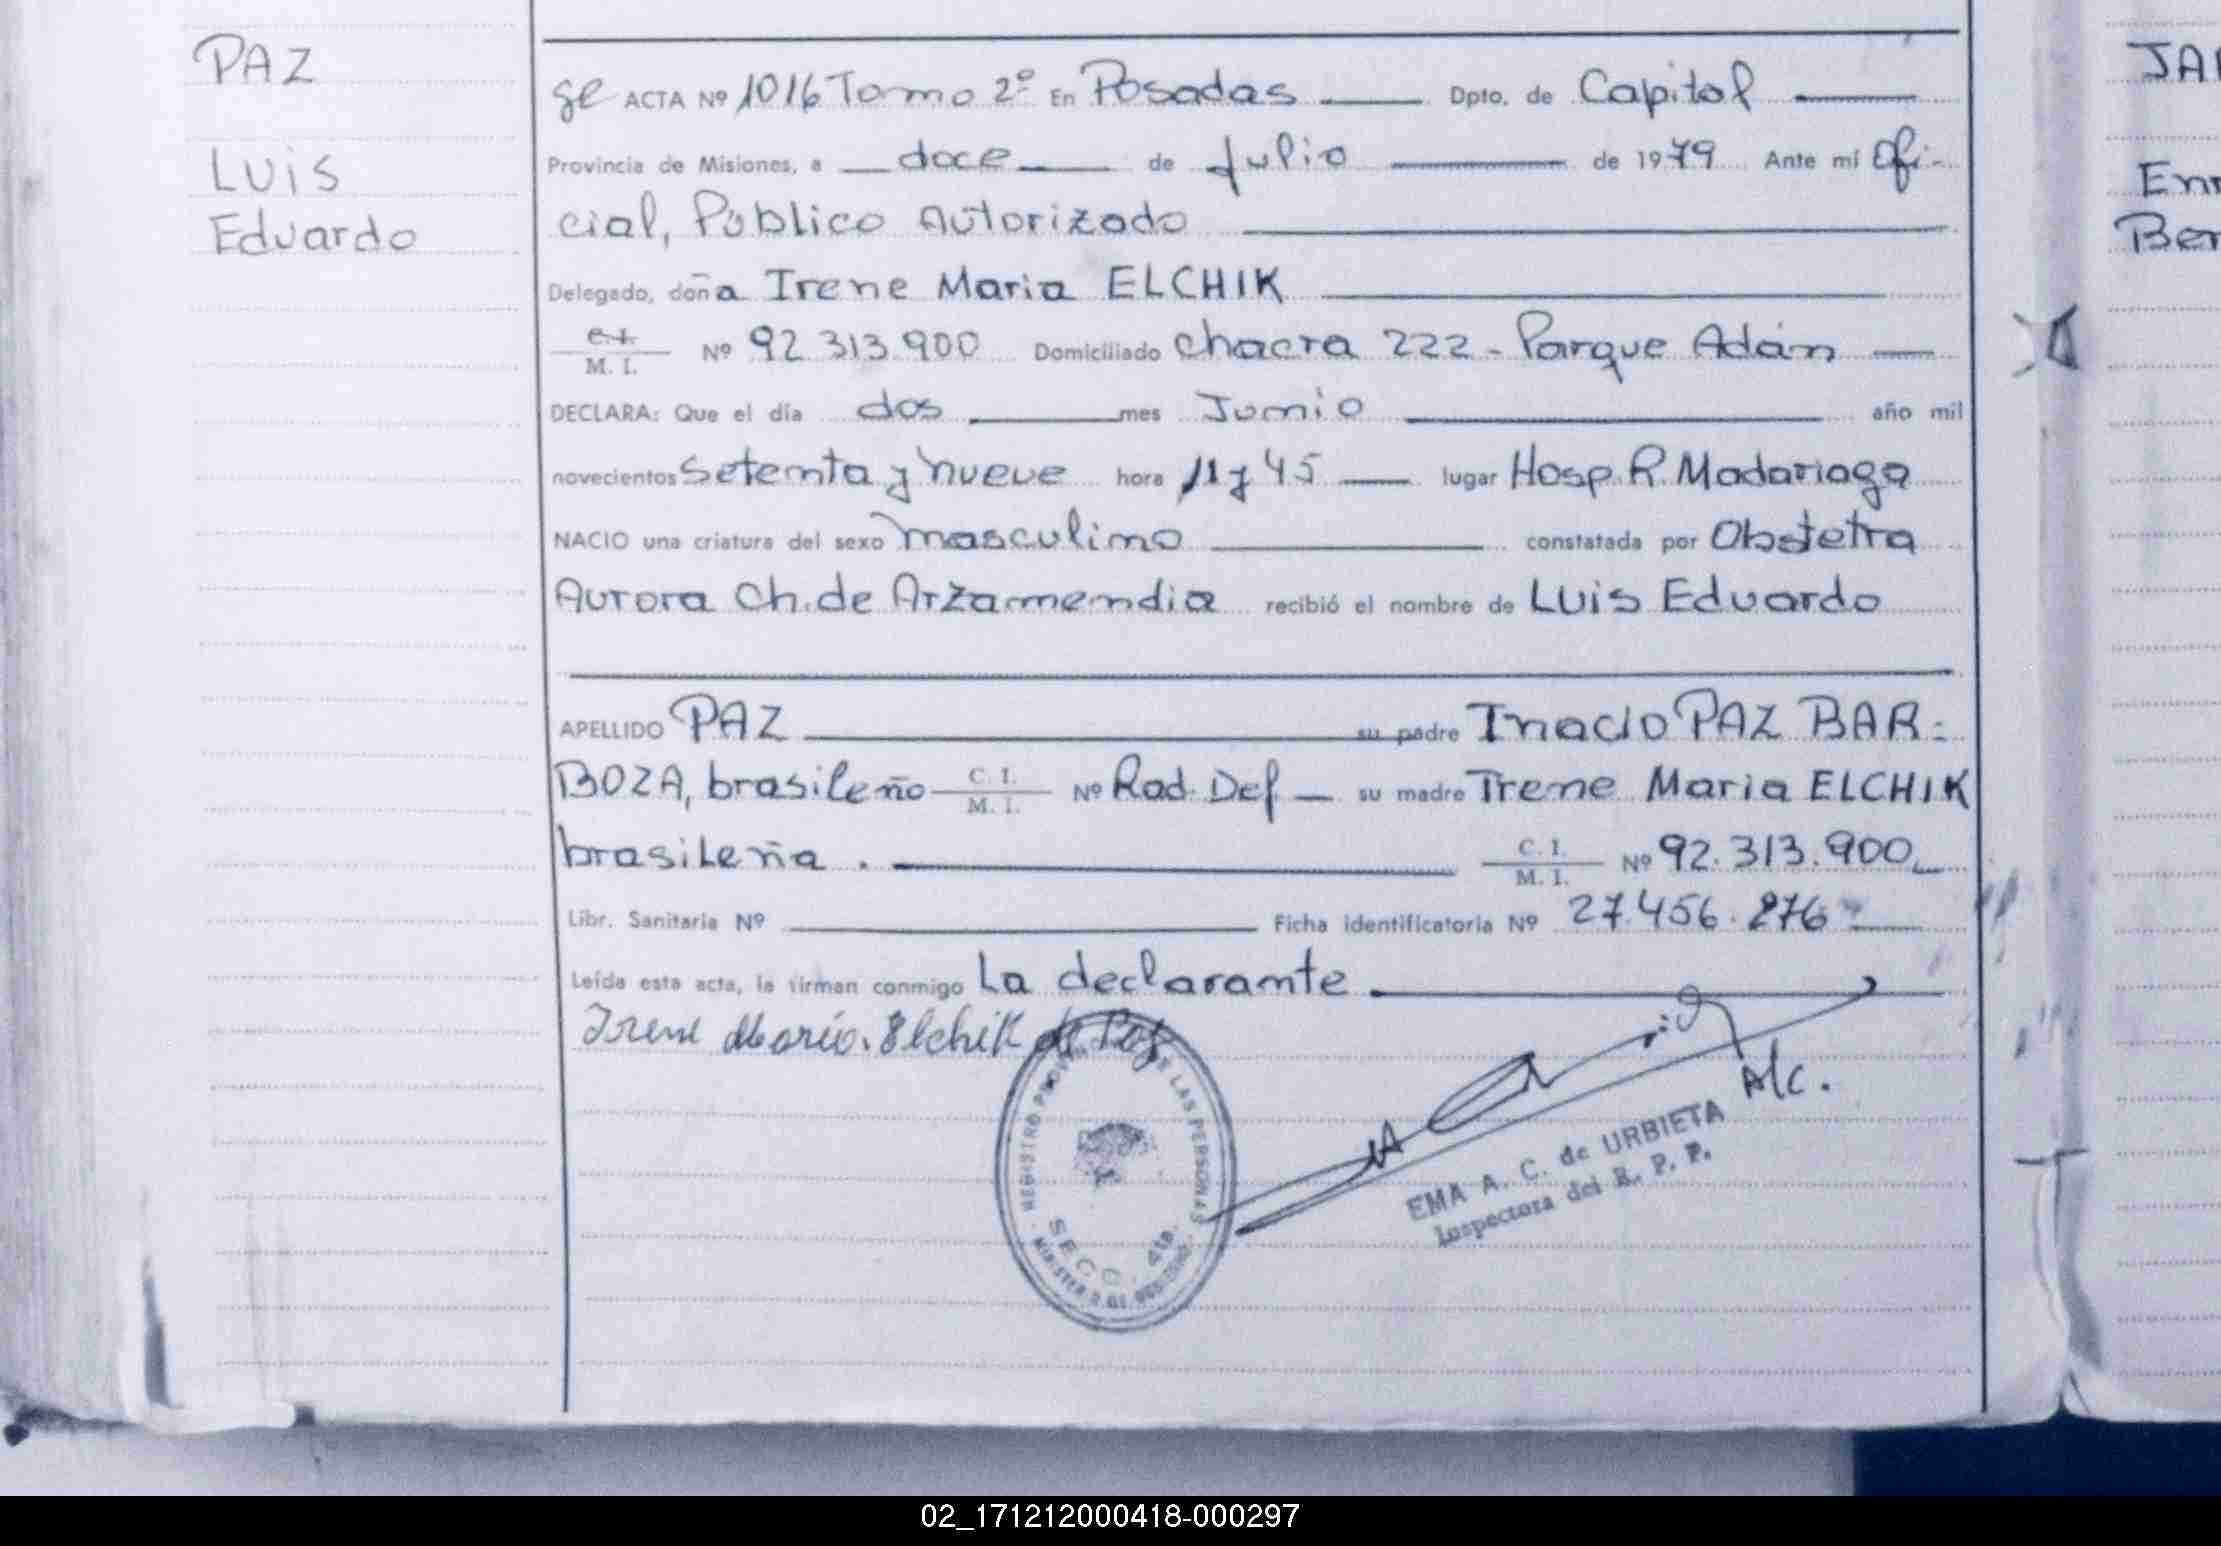 PAZ
LUIS
Eduardo
ACTA Nº 1016 Tomo 2º En Posadas Dpto. de Capital
Provincia de Misiones, a doce de Julio de 1979 Ante mí Ofi-
cial, Público Autorizado
Delegado, doña Irene Maria ELCHIK
C.I.
M. I. Nº 92 313.900 Domiciliado chacra 222 - Parque Adán
DECLARA: Que el día dos mes Junio año mil
novecientos Setenta y nueve hora 11 y 45 lugar Hosp. R. Madariaga
NACIO una criatura del sexo masculino constatada por Obstetra
Aurora Ch. de Arzamendia recibió el nombre de LUIS Eduardo
APELLIDO PAZ su padre Inacio PAZ BAR=
BOZA, brasileño C. I. M. I. Nº Rad. Def su madre Irene Maria ELCHIK
brasileña. C. I. M. I. Nº 92.313.900
Libr. Sanitaria Nº Ficha identificatoria Nº 27.456.276
Leída esta acta, la firman conmigo La declarante
Irene Maria Elchik de Paz
A/C.
REGISTRO DE LAS PERSONAS
SECC. 4ta.
EMA A. C. de URBIETA
Inspectora del R. P. P.
JA
En
Ber
02_171212000418-000297